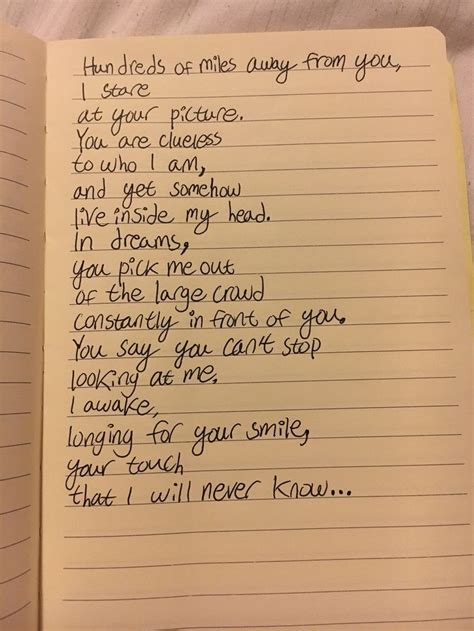 Hundreds of miles away from you,
I stare
at your picture.
You are clueless
to who I am,
and yet somehow
live inside my head.
In dreams,
you pick me out
of the large crowd
constantly in front of you.
You say you can't stop
looking at me.
I awake,
longing for your smile,
your touch
that I will never know...